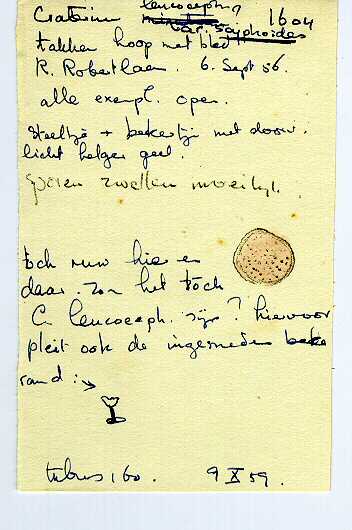 Craterium leucoceph. 1604
minutum
var. scyphoides
takken hoop met blad
R. Robertlaan. 6. Sept 56.
alle exempl. open.
steeltje + bekertje met doorsch.
licht helger geel.
Sporen zwellen moeilijk.
toch ruw hier en
daar. Zou het toch
Cr leucoceph. zijn? hiervoor
pleit ook de ingesneden beker
rand:
tubus 160. 9 X 59.